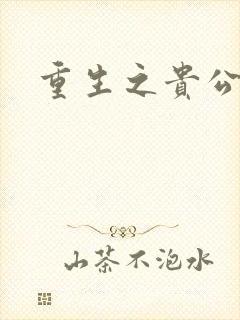 重生之貴公
山茶不泡水